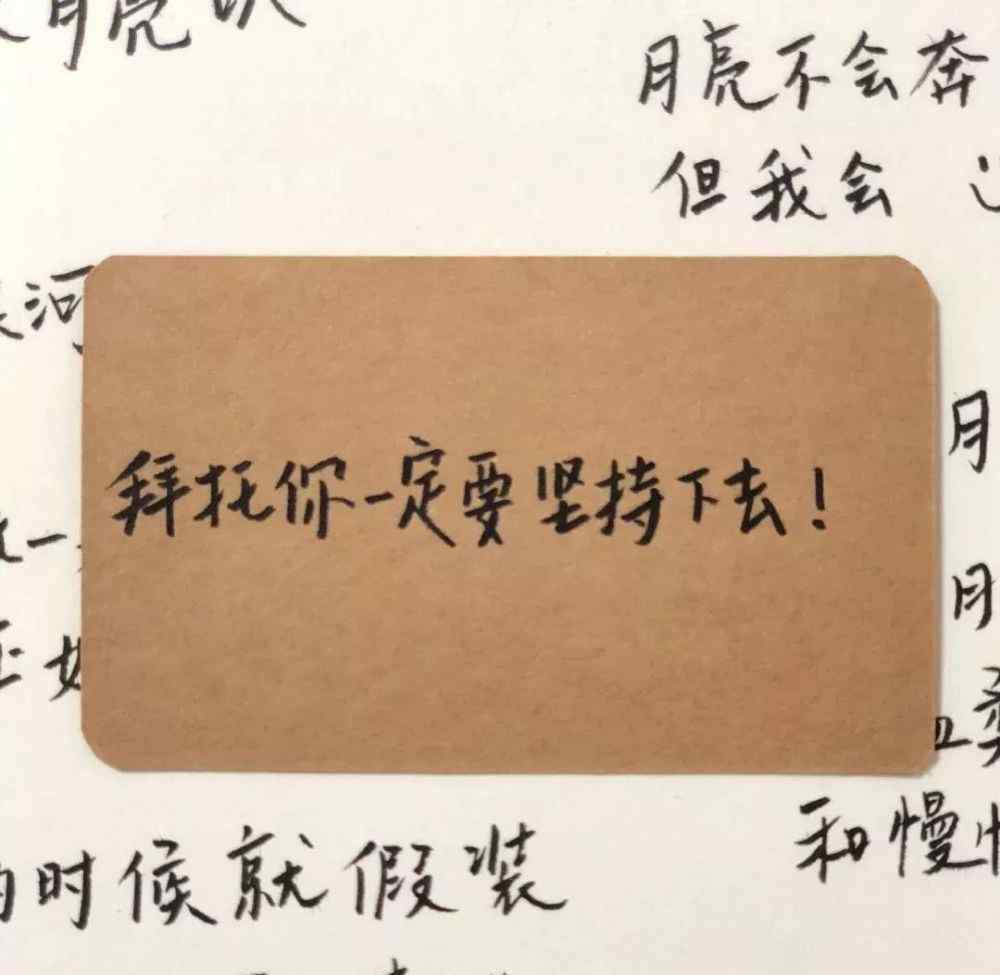 月亮
月亮不会奔
但我会
河
月
拜托你一定要坚持下去！
一
月
和慢
时候就假装